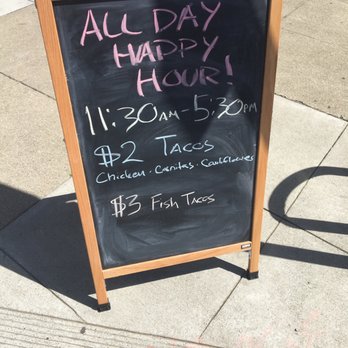 ALL DAY
HAPPY
HOUR!
11:30AM-5:30PM
$2 TACOS
Chicken. Carnitas. Cauliflower
$3 FISH TACOS